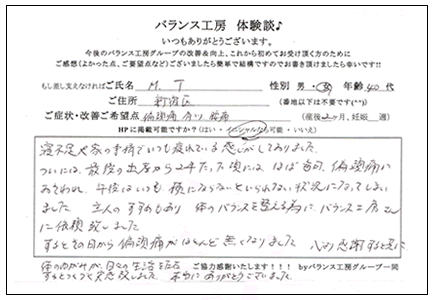 バランス工房 体験談♪
いつもありがとうございます。
今後のバランス工房グループの改善&向上、これから初めてお受け頂く方のために
ご感想(よかった点、ご要望点など)ございましたら簡単で結構ですのでお書き頂けましたら幸いです!!
もし差し支えなければ ご氏名 M. T 性別 男・女 年齢 40代
ご住所 新宿区 (番地以下は不要です(^^))
ご症状・改善ご希望点 偏頭痛 肩こり 腰痛 (産後2ヶ月、妊娠 週)
HPに掲載可能ですか?(はい・イニシャルなら可能・いいえ)
寝不足や家の事情でいつも疲れている感じがしておりました。
ついには、最後の出産から2年たった頃には、ほぼ毎日、偏頭痛に
おそわれ、午後はいつも横にならないといられない状況になってしまい
ました。主人のすすめもあり 体のバランスを整える為に、バランス工房さん
に依頼致しました。
するとその日から偏頭痛がほとんど無くなりました。心より感謝すると共に
体のゆがみが、日々の生活を左右
するとつくづく実感致しました。本当にありがとうございました。
ご協力感謝いたします!!! byバランス工房グループ一同